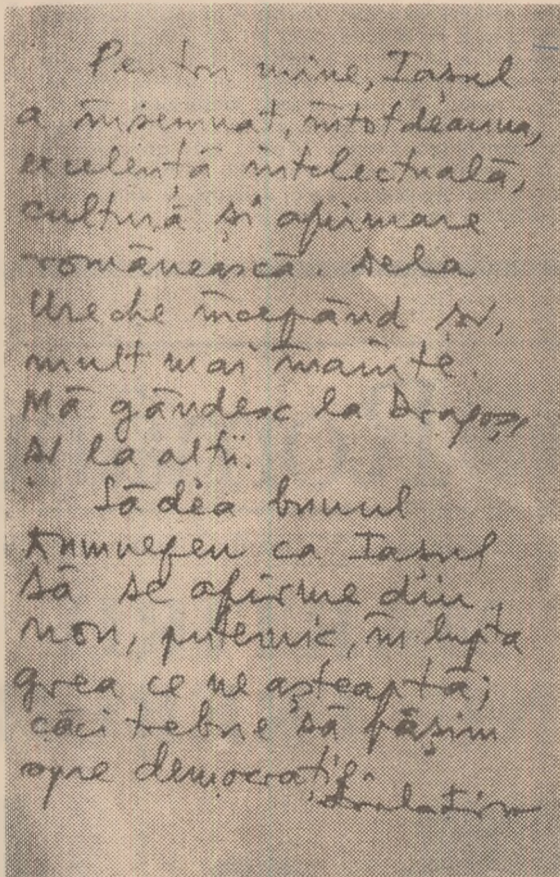 Pentru mine, Iașul
a însemnat, întotdeauna,
excelență intelectuală,
cultură și afirmare
românească. Dela
Ureche începând și,
mult mai înainte.
Mă gândesc la Dragoș,
și la alții.
Să dea bunul
Dumnezeu ca Iașul
să se afirme din
nou, puternic, în lupta
grea ce ne așteaptă;
căci trebuie să pășim
spre democrație.